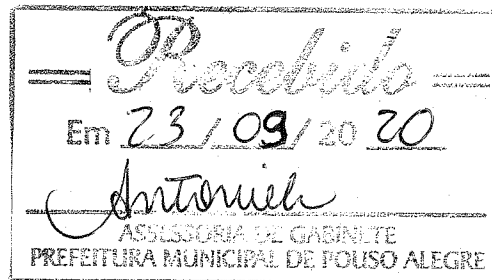 Recebido
Em 23 / 09 / 20 20
ASSESSORIA DE GABINETE
PREFEITURA MUNICIPAL DE POUSO ALEGRE